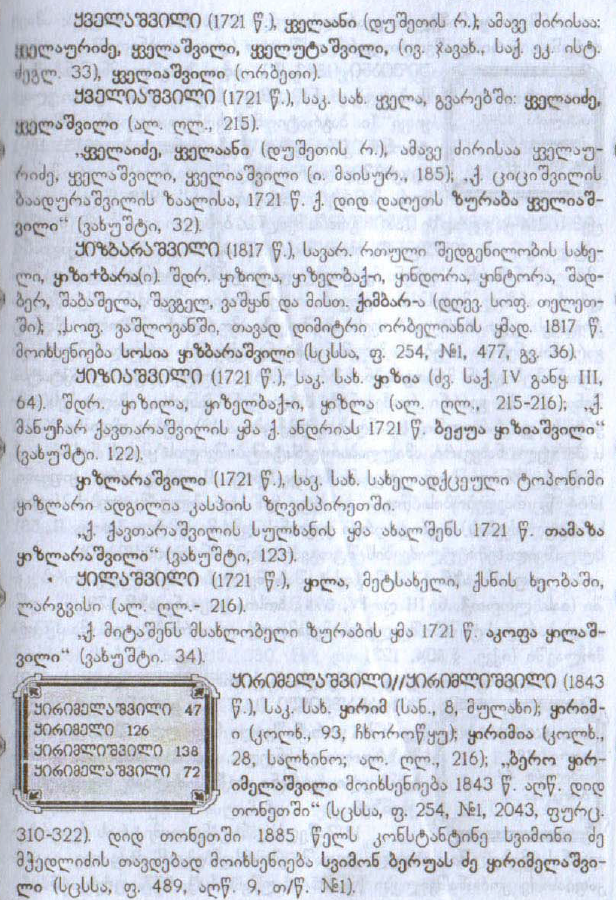 ყველაშვილი (1721 წ.), ყველაანი (დუშეთის რ.); ამავე ძირისაა:
ყველაურიძე, ყველაშვილი, ყველუტაშვილი, (ივ. ჯავახ., საქ. ეკ. ისტ.
ძეგლ. 33), ყველიაშვილი (ორბეთი).
ყველიაშვილი (1721 წ.), საკ. სახ. ყველა, გვარებში: ყველაიძე,
ყველაშვილი (ალ. ღლ., 215).
„ყველაიძე, ყველაანი (დუშეთის რ.), ამავე ძირისაა ყველაუ-
რიძე, ყველაშვილი, ყველიაშვილი (ი. მაისურ., 185); „ქ. ციციშვილის
ბაადურაშვილის ზაალისა, 1721 წ. ქ. დიდ დაღეთს ზურაბა ყველიაშ-
ვილი“ (ვახუშტი, 32).
ყიზბარაშვილი (1817 წ.), სავარ. რთული შედგენილობის სახე-
ლი, ყიზი+ბარა(ი). შდრ. ყიზილა, ყიზელბაქ-ი, ყინდორა, ყინტორა, შად-
ბერ, შაბაშელა, შავგელ, ვაშყან და მისთ. ქიმბარ-ა (დღევ. სოფ. თელეთ-
ში); „სოფ. ვაშლოვანში, თავად დიმიტრი ორბელიანის ყმად. 1817 წ.
მოიხსენიება სოსია ყიზბარაშვილი (სცსსა, ფ. 254, №1, 477, გვ. 36).
ყიზიაშვილი (1721 წ.), საკ. სახ. ყიზია (ძვ. საქ. IV განყ. III,
64). შდრ. ყიზილა, ყიზელბაქ-ი, ყიზლა (ალ. ღლ., 215-216); „ქ.
მანუჩარ ქავთარაშვილის ყმა ქ. ანდრიას 1721 წ. ბეჟუა ყიზიაშვილი“
(ვახუშტი. 122).
ყიზლარაშვილი (1721 წ.), საკ. სახ. სახელადქცეული ტოპონიმი
ყიზლარი ადგილია კასპიის ზღვისპირეთში.
„ქ. ქავთარაშვილის სულხანის ყმა ახალშენს 1721 წ. თამაზა
ყიზლარაშვილი“ (ვახუშტი, 123).
ყილაშვილი (1721 წ.), ყილა, მეტსახელი, ქსნის ხეობაში,
ლარგვისი (ალ. ღლ.- 216).
„ქ. მიტაშენს მსახლობელი ზურაბის ყმა 1721 წ. აკოფა ყილაშ-
ვილი“ (ვახუშტი, 34).
ყირიმელაშვილი 47
ყირიმელი 126
ყირიმლიშვილი 138
ყირიმელაშვილი 72
ყირიმელაშვილი//ყირიმლიშვილი (1843
წ.), საკ. სახ. ყირიმ (სან., 8, მულახი); ყირიმ-
ი (კოლხ., 93, ჩხოროწყუ); ყირიმია (კოლხ.,
28; სალხინო; ალ. ღლ., 216); „ბერო ყირ-
იმელაშვილი მოიხსენიება 1843 წ. აღწ. დიდ
თონეთში“ (სცსსა, ფ. 254, №1, 2043, ფურც.
310-322). დიდ თონეთში 1885 წელს კონსტანტინე სვიმონი ძე
მჭედლიძის თავდებად მოიხსენიება სვიმონ ბერუას ძე ყირიმელაშვი-
ლი (სცსსა, ფ. 489, აღწ. 9, თ/წ. №1).